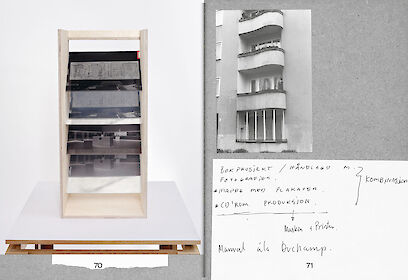 70
BOKPROSJEKT / HÅNDLAGD M.
FOTOGRAFIER.
• MAPPE MED PLAKATER.
• CD'ROM PRODUKSJON.
KOMBINASJON
Maskin & Printer.
Manual á la Duchamp.
71